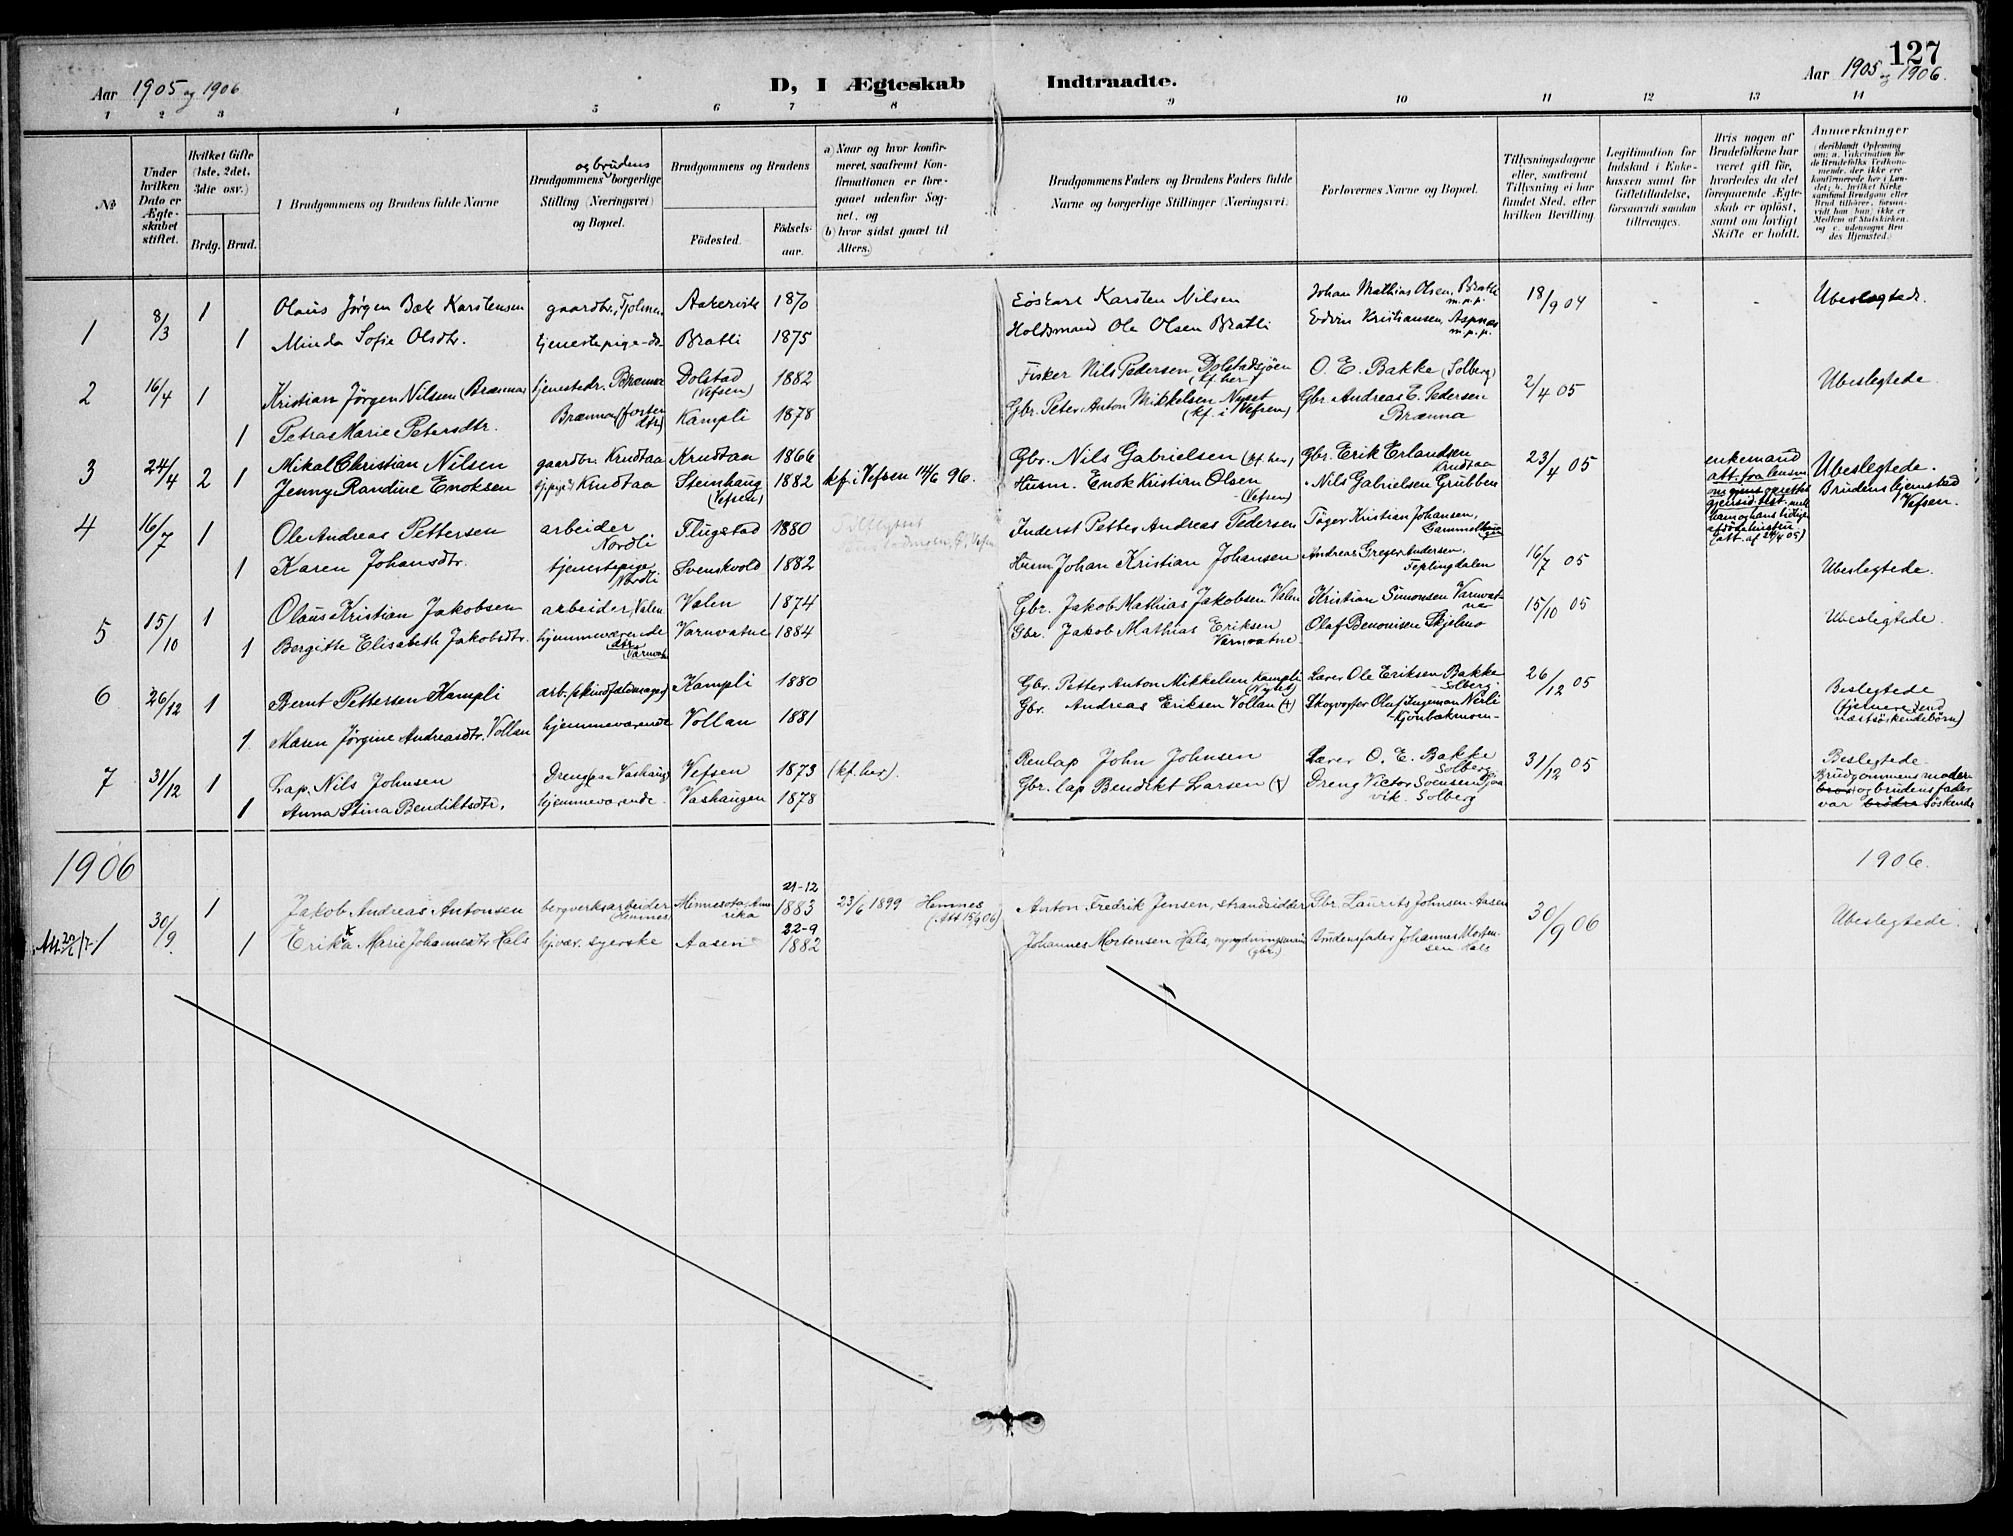 127
Aar 1905 og 1906
D, I Ægteskab Indtraadte.
Aar 1905 og 1906.
1 2 3 4 5 6 7 8 9 10 11 12 13 14
No
Under hvilken Dato er Ægteskabet stiftet.
Hvilket Gifte (1ste, 2det, 3die osv.)
Brdg. Brud.
Brudgommens og Brudens fulde Navne
og brudens
Brudgommens borgerlige Stilling (Næringsvei) og Bopæl.
Brudgommens og Brudens
Fødested. Fødselsaar.
a) Naar og hvor konfirmeret, saafremt Konfirmationen er foregaaet udenfor Sognet, og
b) hvor sidst gaaet til Alters.
Brudgommens Faders og Brudens Faders fulde Navne og borgerlige Stillinger (Næringsvei).
Forlovernes Navne og Bopæl.
Tillysningsdagene eller, saafremt Tillysning ei har fundet Sted, efter hvilken Bevilling.
Legitimation for Indskud i Enkekassen samt for Giftetilladelse, forsaavidt saadan tiltrænges.
Hvis nogen af Brudefolkene har været gift før, hvorledes da det foregaaende Ægteskab er opløst, samt om lovligt Skifte er holdt.
Anmerkninger
1 8/3 1 Olaus Jörgen Bæk Karstensen gaardbr. Aakervik 1870 Karsten Nilsen Johan Mathias Olsen, Bratli m.p.p. 18/9 04 Ubeslegtede.
1 Minda Sofie Olsdtr. tjenestepige Bratli 1875 Holdsmand Ole Olsen Bratli Edvin Kristiansen, Aspnes m.p.p.
2 16/4 1 Kristian Jörgen Nilsen (Brænnas) tjenestedr. Dolstad (Vefsen) 1882 Fisker Nils Pedersen Dolstadsjöen (kf. her) O. E. Bakke (Solberg) 2/4 05 Ubeslegtede
1 Petra Marie Petersdtr. Brænna (foster dtr) Kampli 1878 Gbr. Peter Anton Mikkelsen (kf. i Vefsen) Gbr. Andreas E. Pedersen Brænna
3 24/4 2 Mikal Christian Nilsen gaardbr. Krudtaa Krudtaa 1866 Gbr. Nils Gabrielsen (kf. her) Gbr. Erik Erlandsen Krudtaa 23/4 05 enkemand Ubeslegtede.
1 Jenny Randine Enoksen Krudtaa Steinhaug (Vefsen) 1882 kf. i Vefsen 14/6 96. Husm. Enok Kristian Olsen (Vefsen) Nils Gabrielsen Grubben Brudens hjemsted Vefsen.
4 16/7 1 Ole Andreas Pettersen arbeider Nordli Flugstad 1880 Inderst Petter Andreas Pedersen Kristian Johansen,
1 Karen Johansdtr. tjenestepige Nordli Svenskvold 1882 Husm Johan Kristian Johansen Andreas Greger Andersen, 16/7 05 Ubeslegtede.
5 15/10 1 Olaus Kristian Jakobsen arbeider, Valen Valen 1874 Gbr. Jakob Mathias Jakobsen Valen Kristian Simonsen Varnvatne 15/10 05 Ubeslegtede.
1 Bergitte Elisabeth Jakobsdtr. hjemmeværende dtr. Varnvatn Varnvatne 1884 Gbr. Jakob Mathias Eriksen Varnvatne Olaf Benonisen Skjelmo
6 26/12 1 Bernt Pettersen Kampli arb. Kampli 1880 Gbr. Petter Anton Mikkelsen Kampli Lærer Ole Eriksen Bakke Solberg 26/12 05 Beslegtede
1 Maren Jörgine Andreasdtr. Vollan hjemmeværende Vollan 1881 Gbr. Andreas Eriksen Vollan (+) Skogvogter Olaf Ingeman Nerli (fjernere end næstsöskendebörn)
7 31/12 1 Lap. Nils Johnsen Dreng paa Vashaug Vefsen 1873 (kf. her). Renlap John Johnsen Lærer O. E. Bakke Solberg 31/12 05 Beslegtede.
1 Anna Stina Bendiktsdtr. hjemmeværende. Vashaugen 1878 Gbr. lap Bendikt Larsen Dreng Victor Svensen Solberg Brudgommens moder og brudens fader var söskende
1906 1906.
1 30/9. 1 Jakob Andreas Antonsen bergverksarbeider Hemnes Minnesota, Amerika 21-12 1883 23/6 1899 Hemnes Anton Fredrik Jensen, strandsidder Gbr. Laurits Johnsen Aasen 30/9 06 Ubeslegtede.
1 Erika Marie Johannesdtr. Hals syerske Aasen 22-9 1882 Johannes Mortensen Hals, (gbr.) Brudens fader Johannes Mortensen Hals